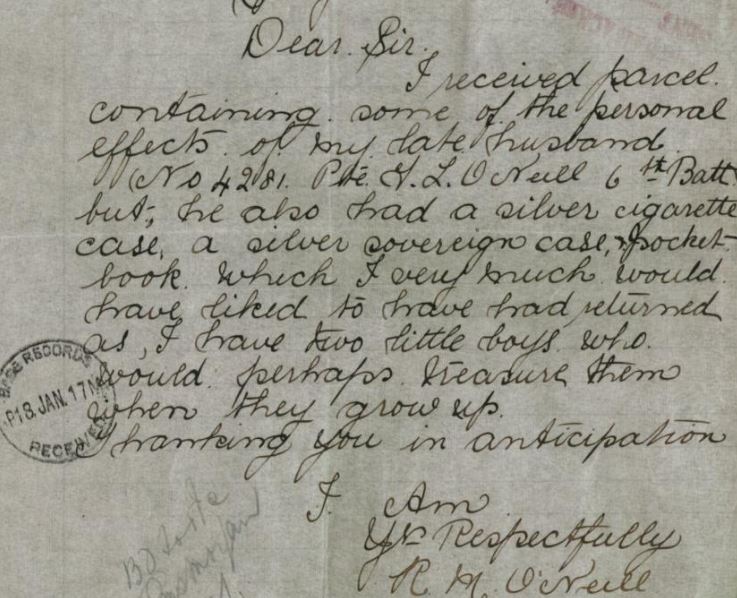 Dear Sir.
I received parcel.
containing some of the personal
effects of my late husband
(No 4281. Pte. H. L. O'Neill 6th Batt.
but, he also had a silver cigarette
case, a silver sovereign case, & pocket-
book. which I very much would
have liked to have had returned
as, I have two little boys who.
would perhaps treasure them
when they grow up.
Thanking you in anticipation
I. Am
Yrs Respectfully
R. M. O'Neill
BASE RECORDS
18. JAN. 17
RECEIVED